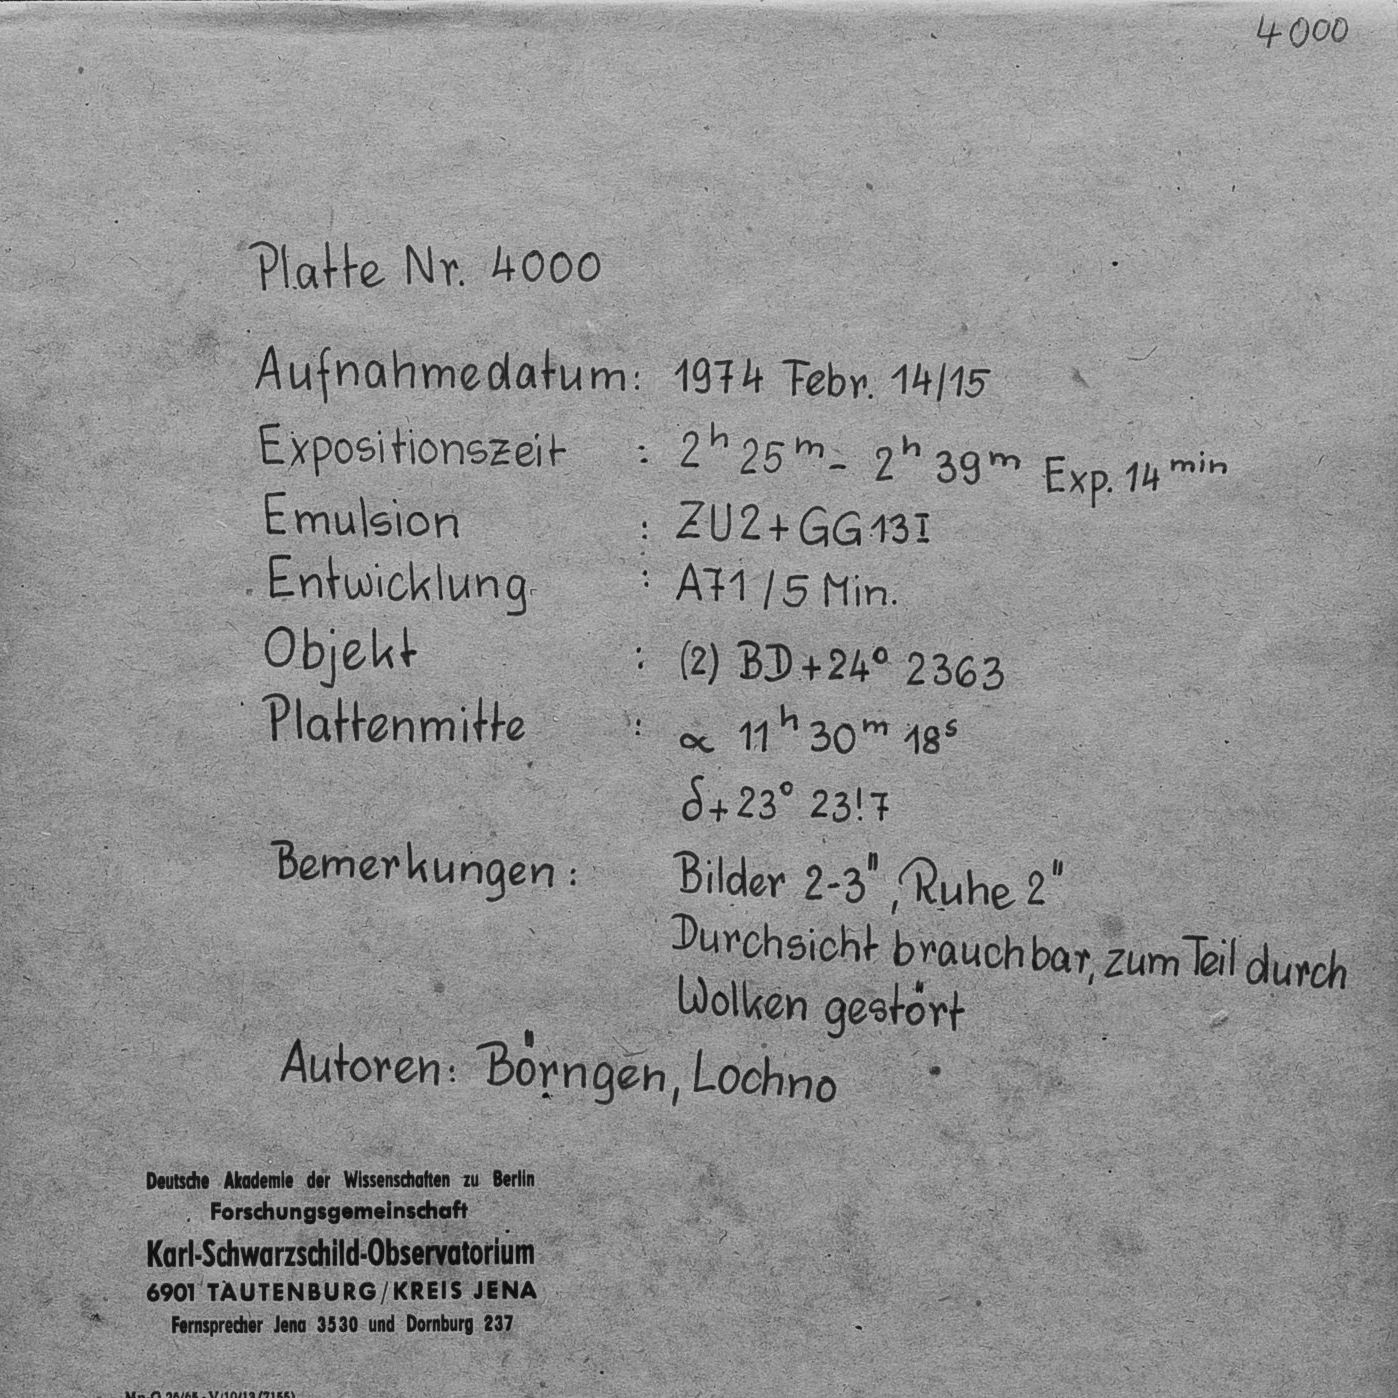 4000
Platte Nr. 4000
Aufnahmedatum: 1974 Febr. 14/15
Expositionszeit : 2ʰ 25ᵐ - 2ʰ 39ᵐ Exp. 14ᵐⁱⁿ
Emulsion : ZU2+GG13I
Entwicklung : A71/5 Min.
Objekt : (2) BD+24° 2363
Plattenmitte : α 11ʰ 30ᵐ 18ˢ
δ+23° 23!7
Bemerkungen: Bilder 2-3", Ruhe 2"
Durchsicht brauchbar, zum Teil durch
Wolken gestört
Autoren: Börngen, Lochno
Deutsche Akademie der Wissenschaften zu Berlin
Forschungsgemeinschaft
Karl-Schwarzschild-Observatorium
6901 TAUTENBURG/KREIS JENA
Fernsprecher Jena 3530 und Dornburg 237